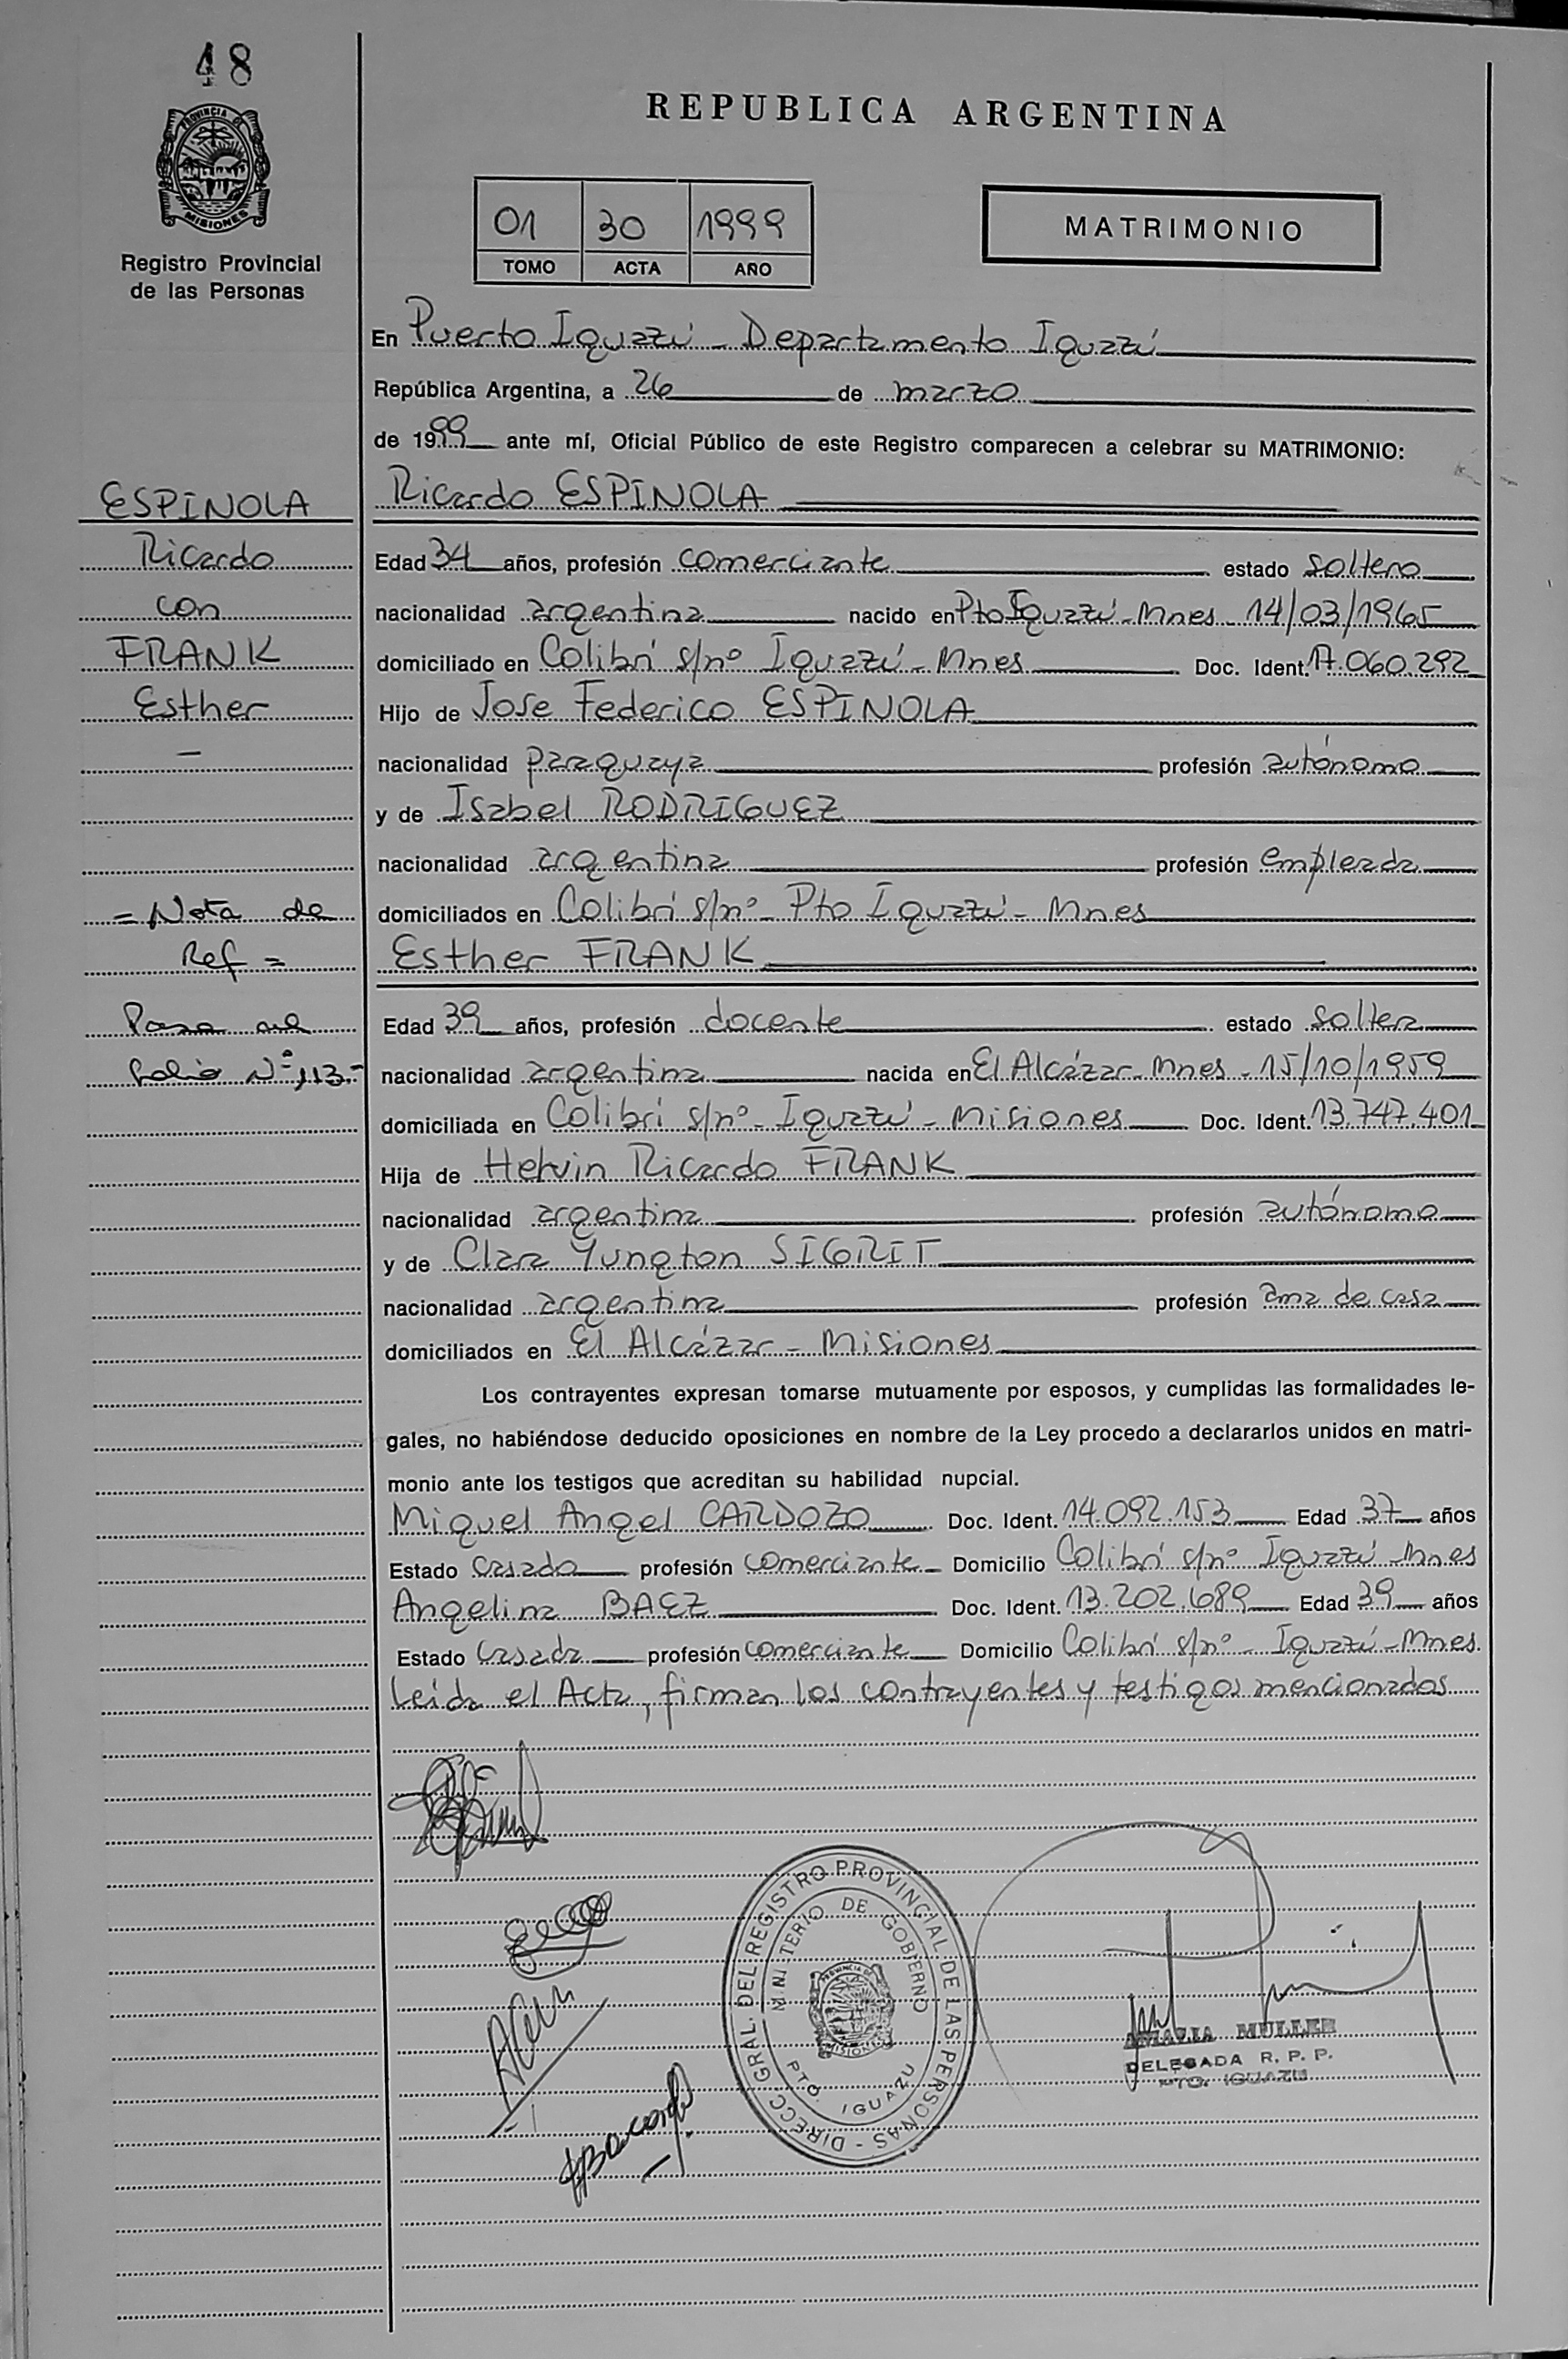 48
PROVINCIA DE
MISIONES
Registro Provincial
de las Personas
REPUBLICA ARGENTINA
01 30 1999
TOMO ACTA AÑO
MATRIMONIO
En Puerto Iguazú - Departamento Iguazú
República Argentina, a 26 de marzo
de 1999 ante mí, Oficial Público de este Registro comparecen a celebrar su MATRIMONIO:
ESPINOLA
Ricardo
con
FRANK
Esther
-
= Nota de
Ref =
Pasa al
folio Nº 113.-
Ricardo ESPINOLA
Edad 34 años, profesión comerciante estado soltero
nacionalidad argentina nacido en Pto Iguazú - Mnes - 14/03/1965
domiciliado en Colibrí s/nº Iguazú - Mnes Doc. Ident. 17.060.292
Hijo de Jose Federico ESPINOLA
nacionalidad paraguaya profesión autónomo
y de Isabel RODRIGUEZ
nacionalidad argentina profesión empleada
domiciliados en Colibrí s/nº - Pto Iguazú - Mnes
Esther FRANK
Edad 39 años, profesión docente estado soltera
nacionalidad argentina nacida en El Alcázar - Mnes - 15/10/1959
domiciliada en Colibrí s/nº - Iguazú - Misiones Doc. Ident. 13.747.401
Hija de Helvin Ricardo FRANK
nacionalidad argentina profesión autónomo
y de Clara Yungton SIGRIT
nacionalidad argentina profesión ama de casa
domiciliados en El Alcázar - Misiones
Los contrayentes expresan tomarse mutuamente por esposos, y cumplidas las formalidades le-
gales, no habiéndose deducido oposiciones en nombre de la Ley procedo a declararlos unidos en matri-
monio ante los testigos que acreditan su habilidad nupcial.
Miguel Angel CARDOZO Doc. Ident. 14.092.153 Edad 37 años
Estado casado profesión comerciante Domicilio Colibrí s/nº Iguazú - Mnes
Angelina BAEZ Doc. Ident. 13.202.689 Edad 39 años
Estado casada profesión comerciante Domicilio Colibrí s/nº - Iguazú - Mnes.
Leída el Acta, firman los contrayentes y testigos mencionados
DIRECC GRAL. DEL REGISTRO PROVINCIAL DE LAS PERSONAS -
MINISTERIO DE GOBIERNO
PROVINCIA DE
MISIONES
PTO. IGUAZU
MULLER
DELEGADA R. P. P.
PTO. IGUAZU